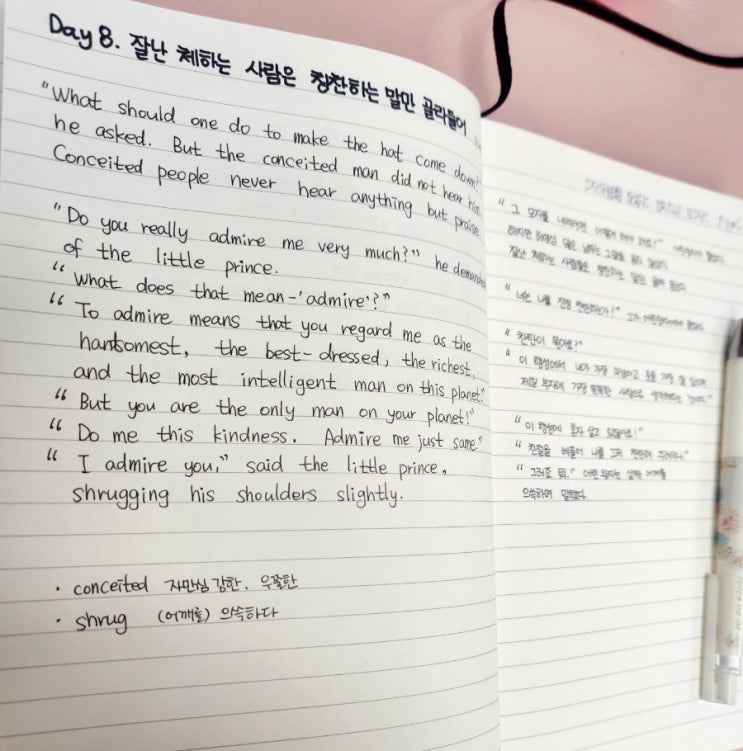 Day 8. 잘난 체하는 사람은 칭찬하는 말만 골라들어
"What should one do to make the hat come down?"
he asked. But the conceited man did not hear him.
Conceited people never hear anything but praise.
"Do you really admire me very much?" he demanded
of the little prince.
"What does that mean - 'admire'?"
"To admire means that you regard me as the
handsomest, the best-dressed, the richest,
and the most intelligent man on this planet."
"But you are the only man on your planet!"
"Do me this kindness. Admire me just same."
"I admire you," said the little prince,
shrugging his shoulders slightly.
· conceited 자만심 강한, 우쭐한
· shrug (어깨를) 으쓱하다
"그 모자를 어떻게 하면
하지만 남자는 그 말을 듣지 않았다.
잘난 체하는 사람들은 칭찬하는 말만
"너는 나를 정말 찬탄하는가?" 그가
"찬탄이 뭐예요?"
"이 행성에서 내가 가장 미남이고 옷을 가장 잘 입으며
제일 부자에, 가장 똑똑한 사람으로
"이 행성에 혼자 살고 있잖아요!"
"친절을 베풀어 나를 그저 찬탄해 주려무나."
"그러죠 뭐." 어린 왕자는 살짝 어깨를
으쓱하며 말했다.